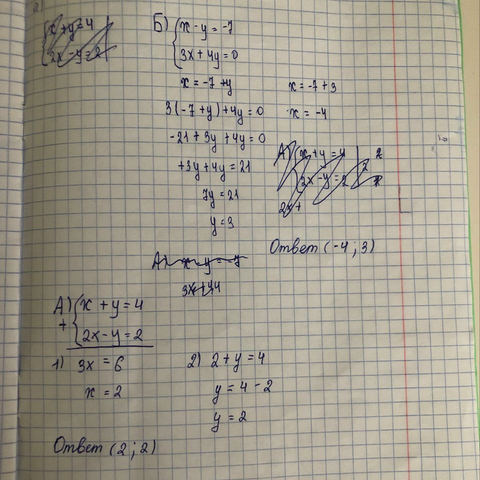 x + y = 4
2x - y = 2
Б) x - y = -7
3x + 4y = 0
x = -7 + y
x = -7 + 3
3(-7 + y) + 4y = 0
x = -4
-21 + 3y + 4y = 0
+3y + 4y = 21
7y = 21
y = 3
А) x + y = 4 | 2
2x - y = 2
2x +
Ответ (-4; 3)
А) x - y = -7
3x + 4y
А) x + y = 4
+ 2x - y = 2
1) 3x = 6
x = 2
2) 2 + y = 4
y = 4 - 2
y = 2
Ответ (2; 2)